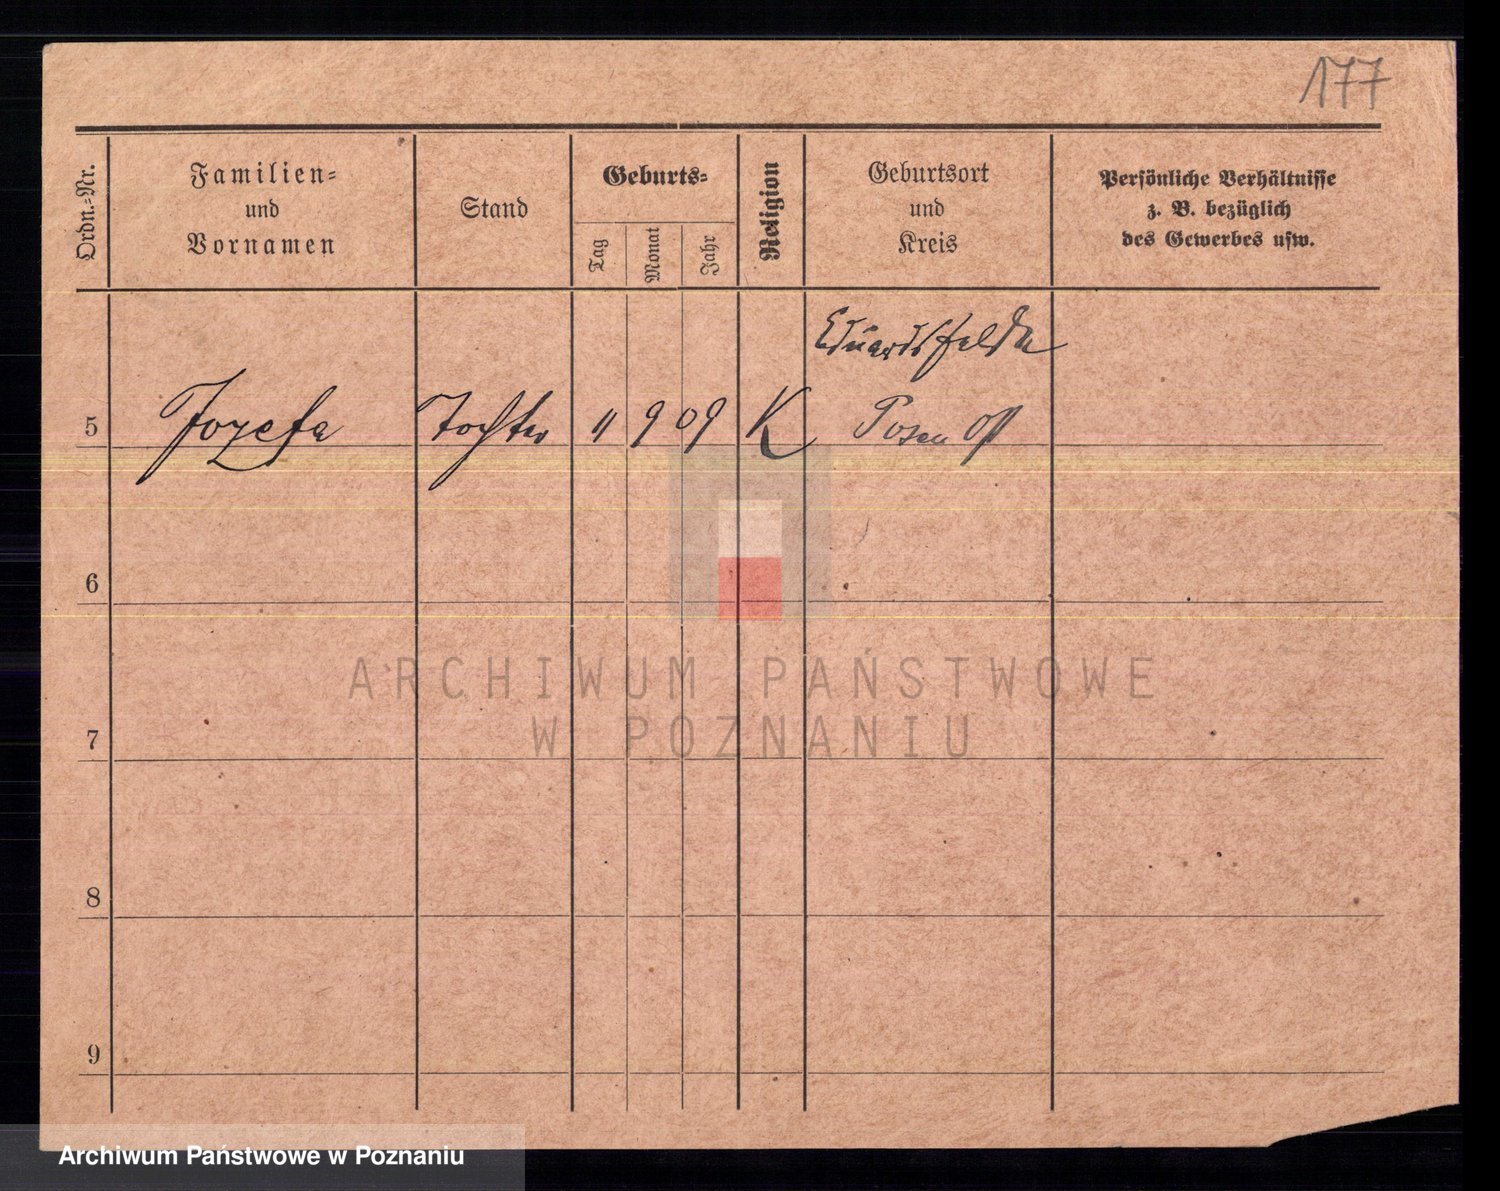 177
Ordn.-Nr.
Familien-
und
Vornamen
Stand
Geburts-
Tag
Monat
Jahr
Religion
Geburtsort
und
Kreis
Persönliche Verhältnisse
z. B. bezüglich
des Gewerbes usw.
Eduardsfelde
5 Jozefa Tochter 11 9 09 K Posen Ost
6
7
8
9
ARCHIWUM PAŃSTWOWE
W POZNANIU
Archiwum Państwowe w Poznaniu